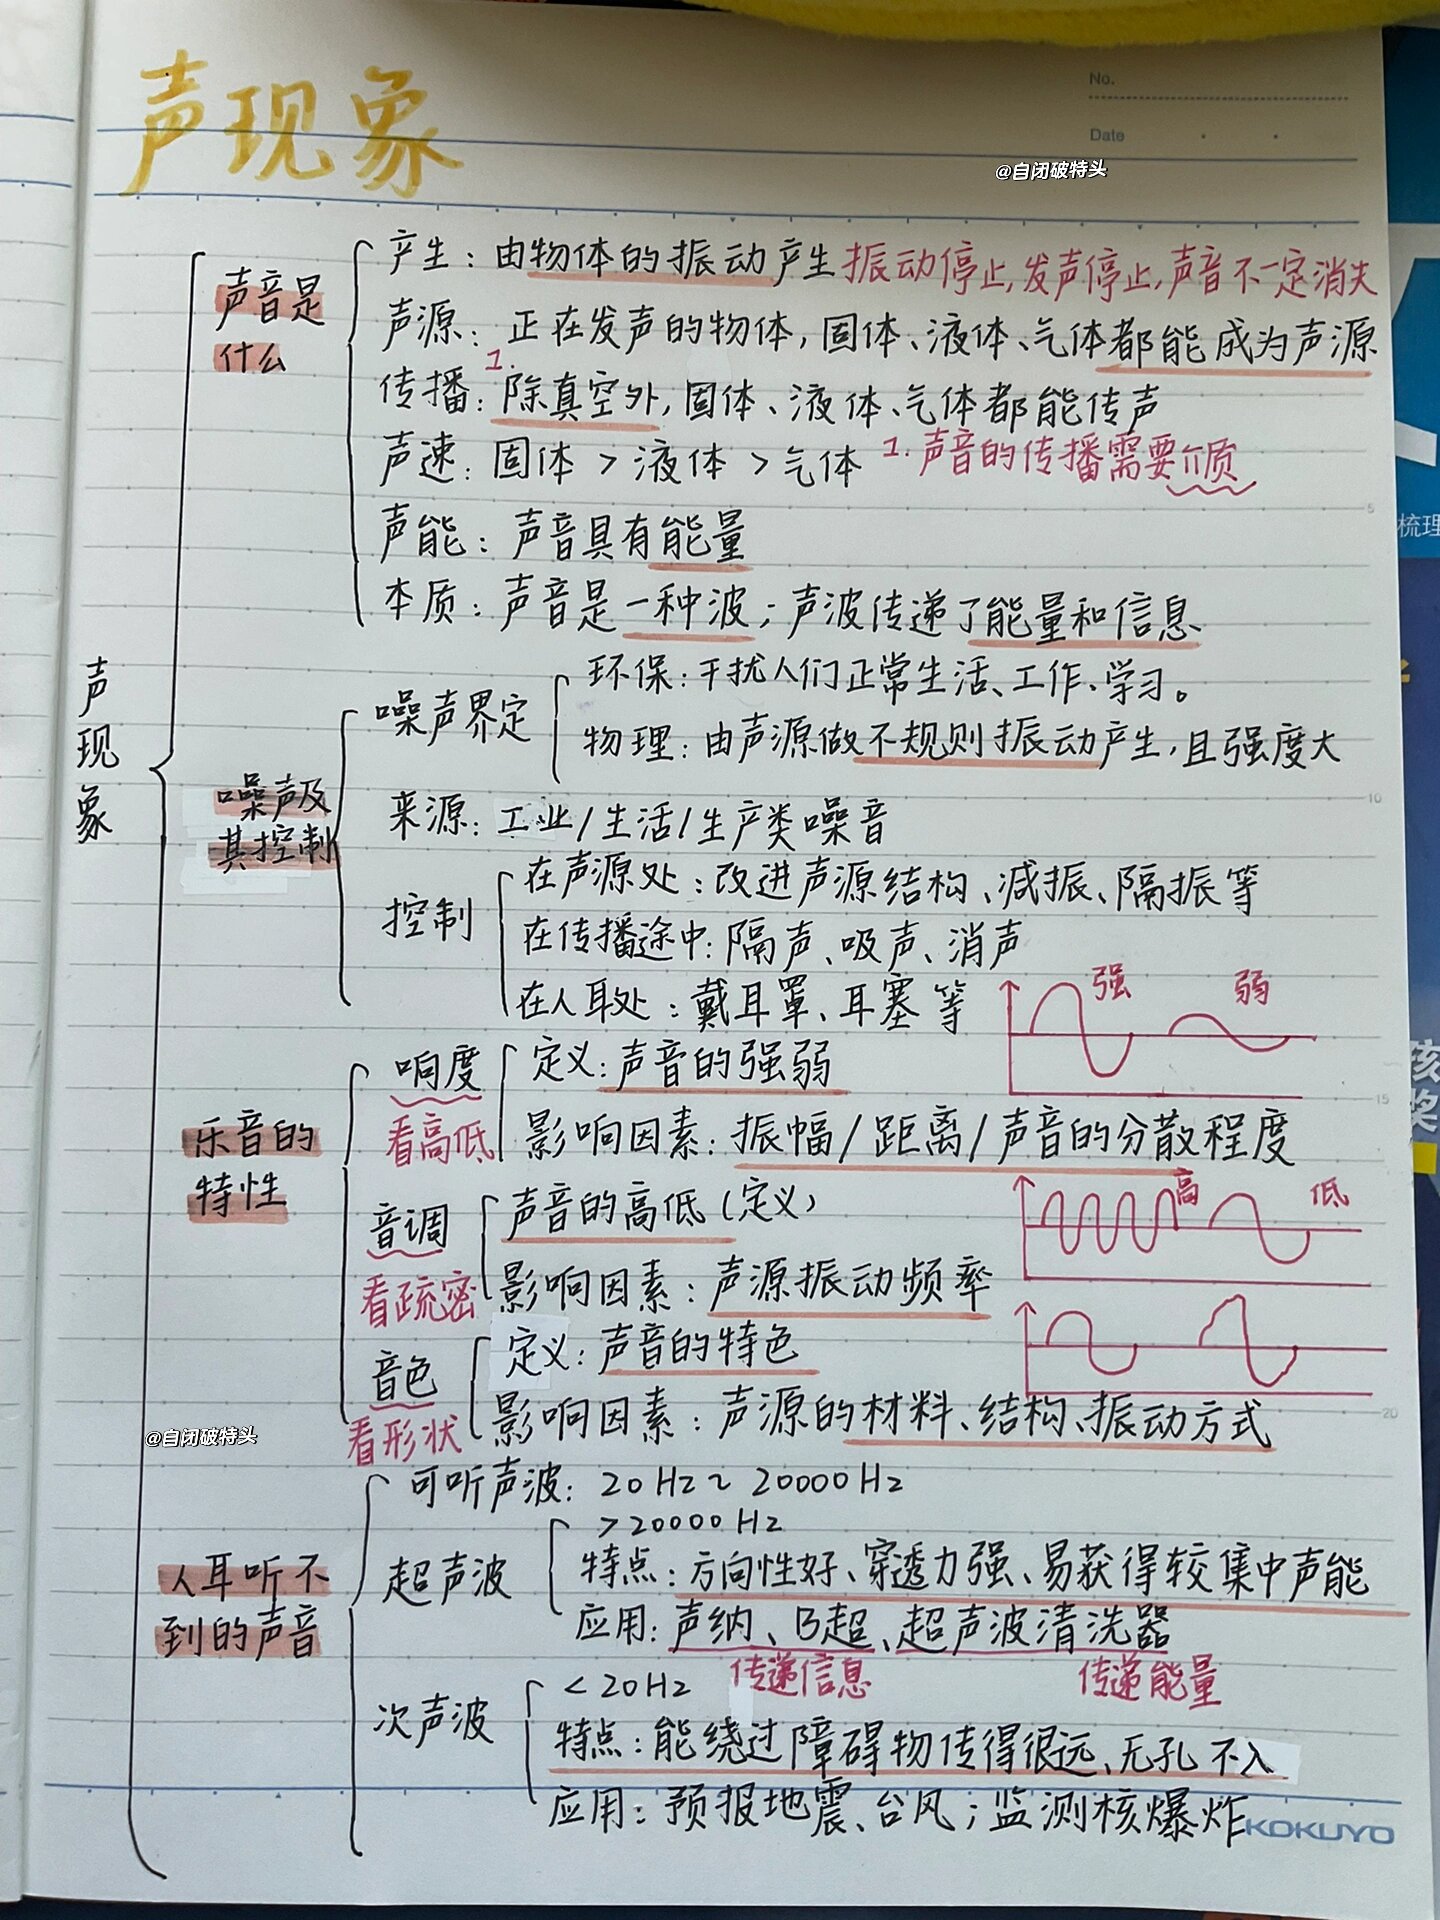 声现象
No.
Date
@自闭破特头
声现象
声音是
什么
产生：由物体的振动产生 振动停止,发声停止,声音不一定消失
声源：正在发声的物体,固体、液体、气体都能成为声源
1.
传播：除真空外,固体、液体、气体都能传声
声速：固体＞液体＞气体 1.声音的传播需要介质
声能：声音具有能量
本质：声音是一种波；声波传递了能量和信息
噪声及
其控制
噪声界定
环保：干扰人们正常生活、工作、学习。
物理：由声源做不规则振动产生,且强度大
来源：工业/生活/生产类噪音
控制
在声源处：改进声源结构、减振、隔振等
在传播途中：隔声、吸声、消声
在人耳处：戴耳罩、耳塞等
强 弱
乐音的
特性
响度
看高低
定义：声音的强弱
影响因素：振幅/距离/声音的分散程度
音调
看疏密
声音的高低(定义)
高 低
影响因素：声源振动频率
音色
看形状
定义：声音的特色
影响因素：声源的材料、结构、振动方式
@自闭破特头
人耳听不
到的声音
可听声波：20Hz~20000Hz
超声波
>20000Hz
特点：方向性好、穿透力强、易获得较集中声能
应用：声纳、B超、超声波清洗器
传递信息 传递能量
次声波
<20Hz
特点：能绕过障碍物传得很远、无孔不入
应用：预报地震、台风；监测核爆炸
KOKUYO
5
10
15
20
梳理
孩
奖